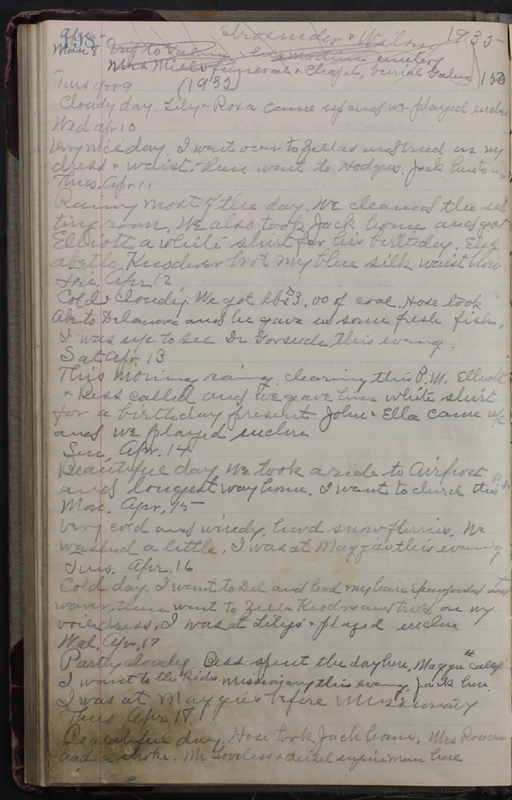 198
1935
Mrs Mills funeral & Chapel, burial Galena
(1932)
Tues Apr 9
Cloudy day. Lily & Rosa came up and we played euchre
Wed Apr 10
Very nice day. I went over to Zellas and tried on my
dress & waist. then went to Hodges. Jack here
Thurs. Apr 11
Rainy most of the day. We cleaned the sit
ting room. We also took Jack home and got
Elliott a white shirt for his birthday. Eliz
abeth my blue silk waist
Fri. Apr 12
Cold & cloudy. We got $3.00 of coal. Hose took
to Delaware and he gave us some fresh fish.
I was up to see Dr Gorsuch this evening.
Sat Apr 13
This morning rainy clearing this P.M. Elliott
& Bess called and we gave him white shirt
for a birthday present John & Ella came up
and we played euchre
Sun. Apr. 14
Beautiful day We took a ride to Airport
and longest way home. I went to church this P.M.
Mon. Apr. 15
Very cold and windy, hard snow flurries. We
washed a little. I was at Maggies this evening
Tues. Apr. 16
Cold day. I went to Del and had my hair shampooed and
waved, then went to Zella and tried on my
voile dress. I was at Lilys & played euchre
Wed. Apr. 17
Partly cloudy. Bess spent the day here, Maggie called
I went to the kids missionary this evening, Jack here.
I was at Maggies before Missionary
Thurs Apr 18
Beautiful day Hose took Jack home. Mrs
had a stroke. Mr Loveless & diesel engine man here